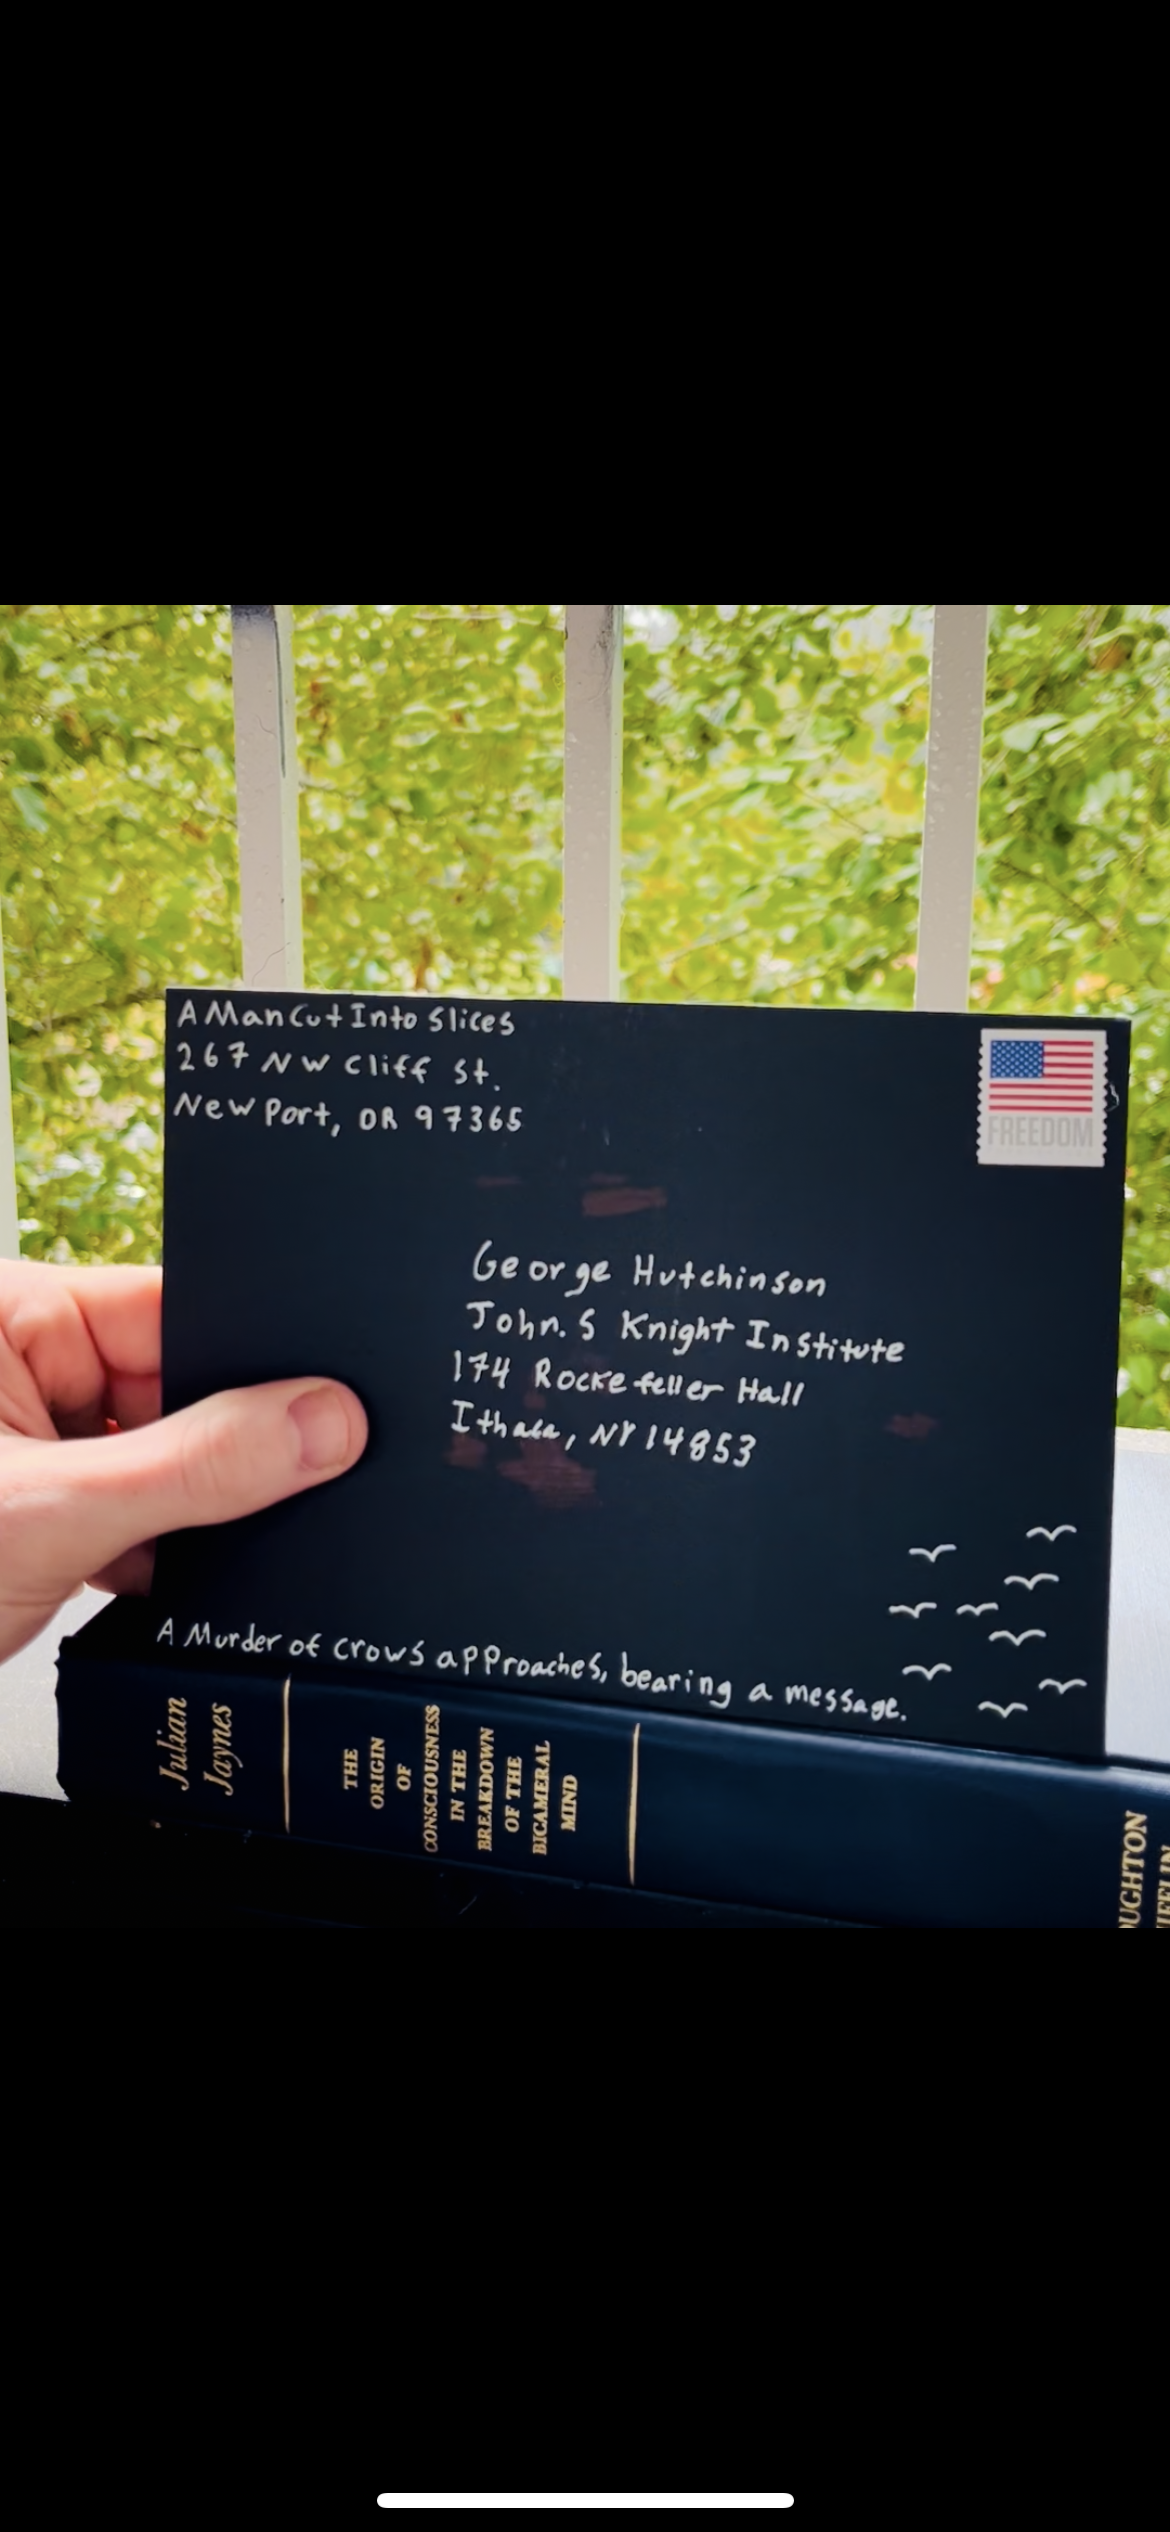 A Man Cut Into Slices
267 NW Cliff St.
Newport, OR 97365
FREEDOM
George Hutchinson
John. S Knight Institute
174 Rockefeller Hall
Ithaca, NY 14853
A Murder of crows approaches, bearing a message.
Julian
Jaynes
THE
ORIGIN
OF
CONSCIOUSNESS
IN THE
BREAKDOWN
OF THE
BICAMERAL
MIND
OUGHTON